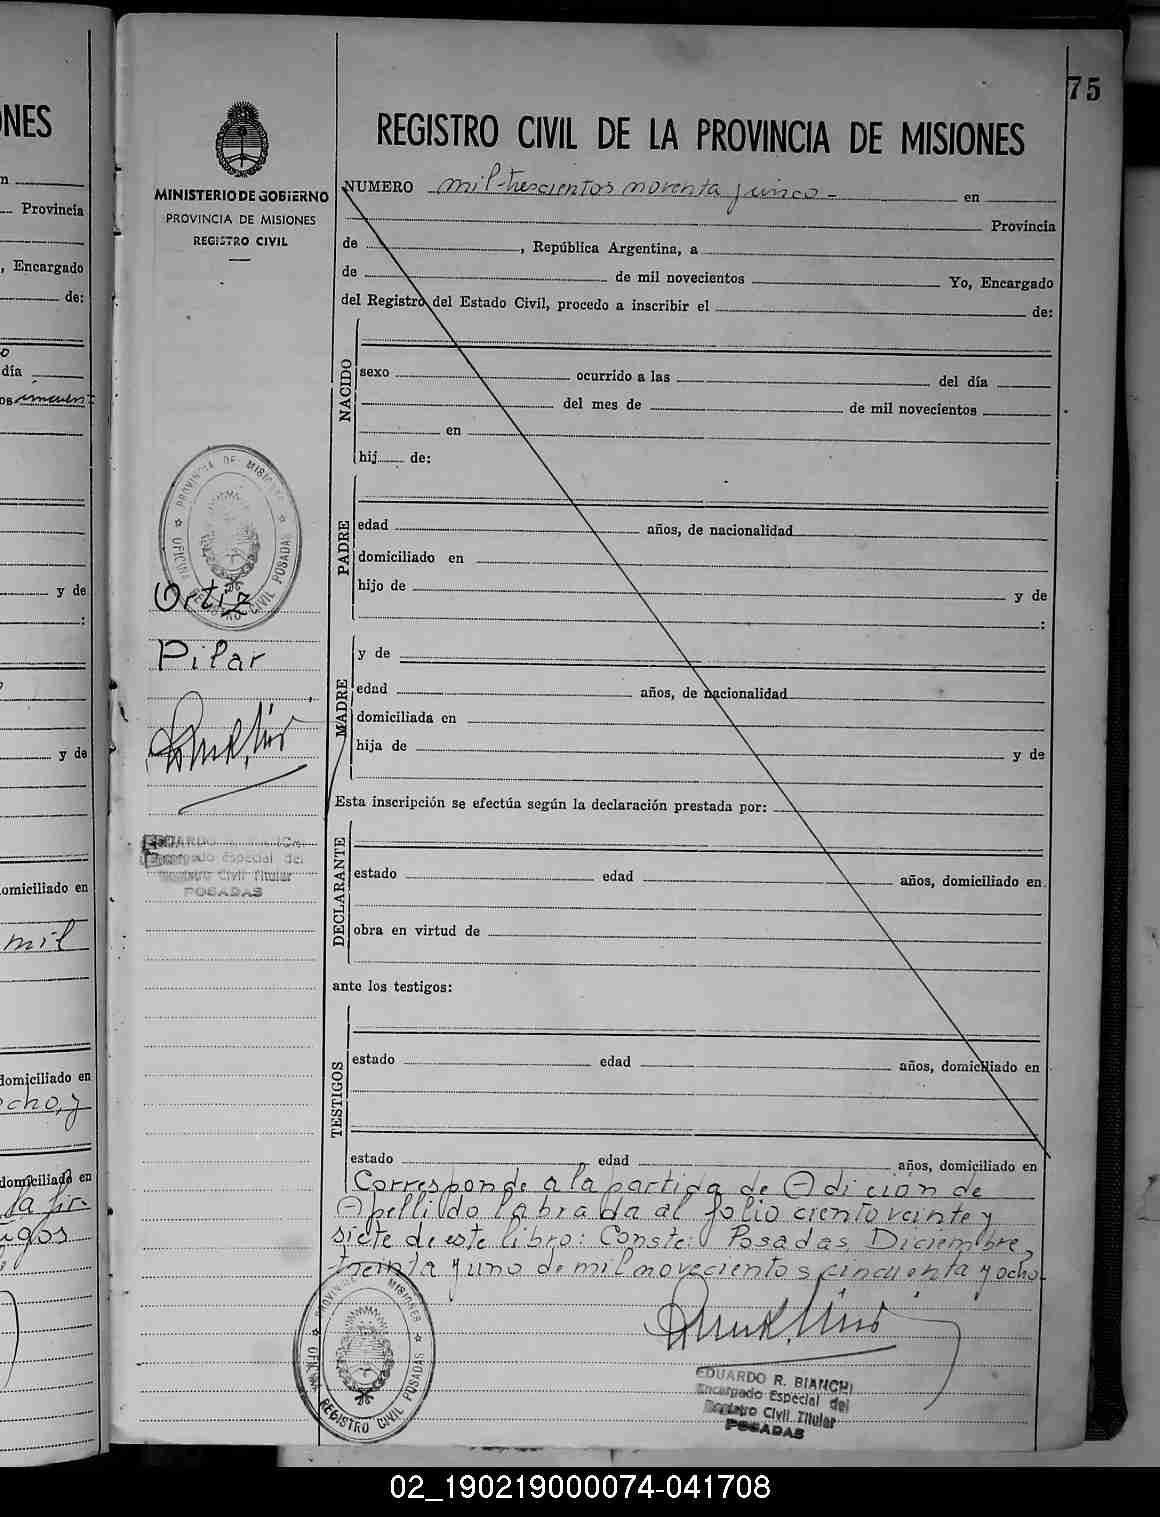 NES
n
Provincia
, Encargado
de:
o
día
os
y de
:
y de
omiciliado en
mil
domiciliado en
ocho, y
domiciliado en
la fir-
igos
75
MINISTERIO DE GOBIERNO
PROVINCIA DE MISIONES
REGISTRO CIVIL
PROVINCIA DE MISIONES
OFICINA REGISTRO CIVIL POSADAS
Ortiz
Pilar
EDUARDO
Encargado Especial del
Registro Civil Titular
POSADAS
REGISTRO CIVIL DE LA PROVINCIA DE MISIONES
NUMERO mil trescientos noventa y cinco - en
Provincia
de , República Argentina, a
de de mil novecientos Yo, Encargado
del Registro del Estado Civil, procedo a inscribir el de:
NACIDO
sexo ocurrido a las del día
del mes de de mil novecientos
en
hij de:
PADRE
edad años, de nacionalidad
domiciliado en
hijo de y de
:
MADRE
y de
edad años, de nacionalidad
domiciliada en
hija de y de
Esta inscripción se efectúa según la declaración prestada por:
DECLARANTE
estado edad años, domiciliado en
obra en virtud de
ante los testigos:
TESTIGOS
estado edad años, domiciliado en
estado edad años, domiciliado en
Corresponde a la partida de Adición de
Apellido labrada al folio ciento veinte y
siete de este libro: Conste: Posadas, Diciembre,
treinta y uno de mil novecientos cincuenta y ocho.
PROVINCIA DE MISIONES
OFICINA REGISTRO CIVIL POSADAS
EDUARDO R. BIANCHI
Encargado Especial del
Registro Civil Titular
POSADAS
02_190219000074-041708